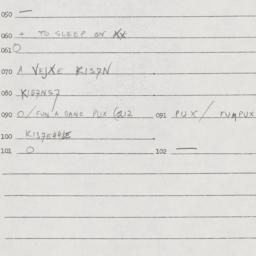 050 —
060 + TO SLEEP ON XX
061 O
070 A VEJXE K1S7N
080 K1S7NS7
090 O/FUN'A DANG PUX (Q12 091 PUX/ PUMPUX
100 K1S7E
101 O 102 —